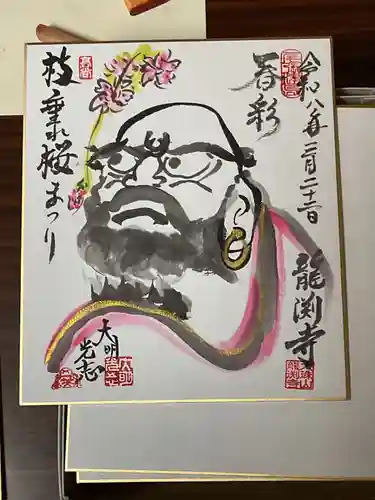 令和八年三月二十二日
春彩
龍渕寺
枝垂れ桜まつり
大明
光志